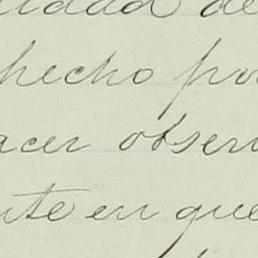 idad de
hecho po
acer obser
te en que